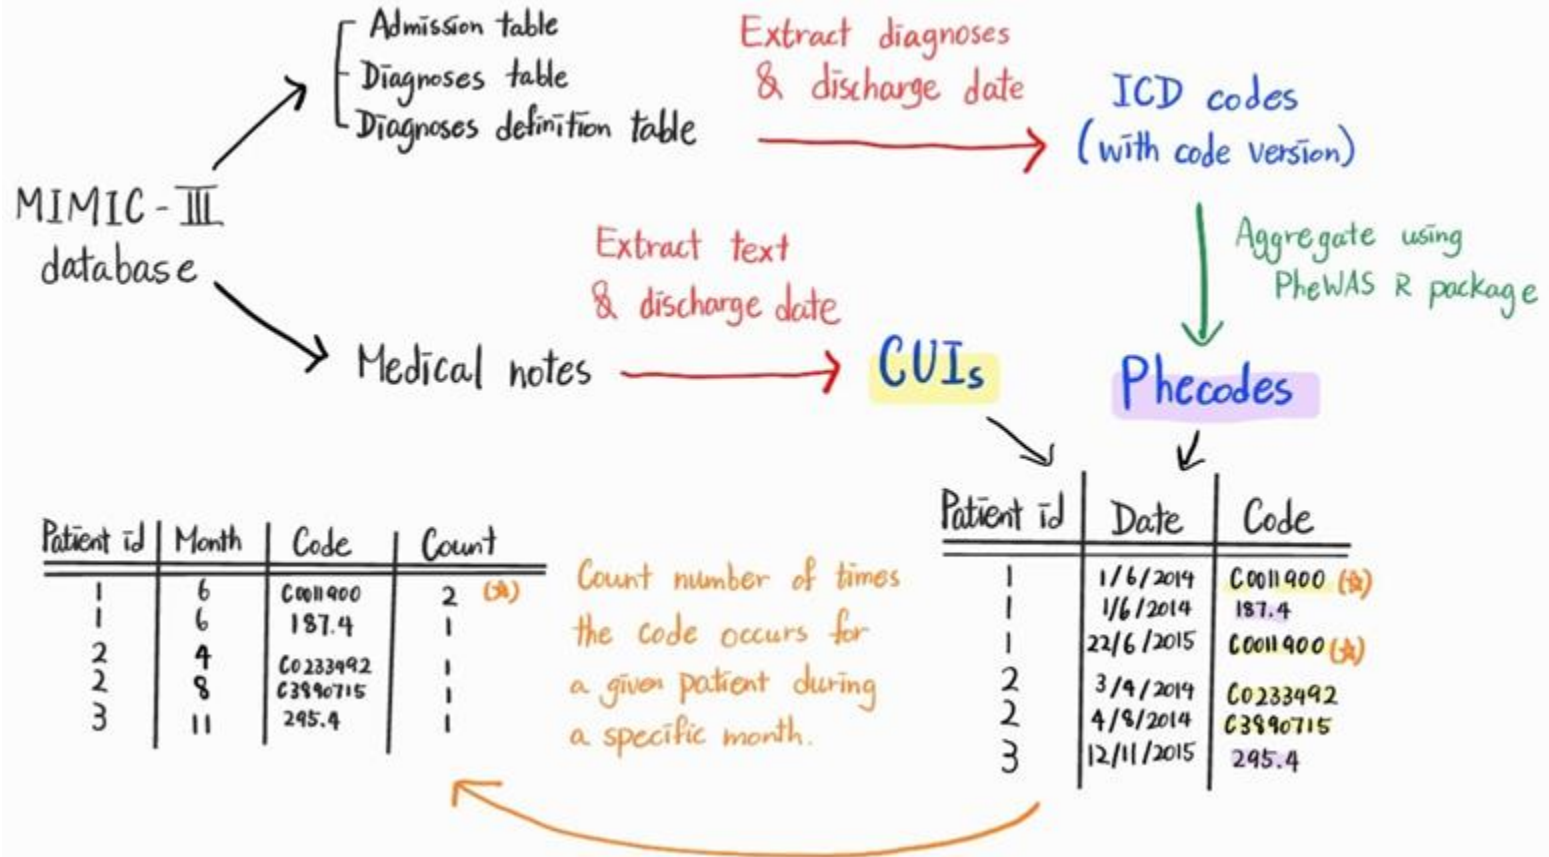 Admission table
Diagnoses table
Diagnoses definition table
Extract diagnoses
& discharge date
ICD codes
(with code version)
MIMIC-III
database
Aggregate using
PheWAS R package
Extract text
& discharge date
Medical notes
CUIs
Phecodes
Patient id | Date | Code
1 | 1/6/2014 | C0011900 (☆)
1 | 1/6/2014 | 187.4
1 | 22/6/2015 | C0011900 (☆)
2 | 3/4/2014 | C0233492
2 | 4/8/2014 | C3890715
3 | 12/11/2015 | 295.4
Count number of times
the code occurs for
a given patient during
a specific month.
Patient id | Month | Code | Count
1 | 6 | C0011900 | 2 (☆)
1 | 6 | 187.4 | 1
2 | 4 | C0233492 | 1
2 | 8 | C3890715 | 1
3 | 11 | 295.4 | 1